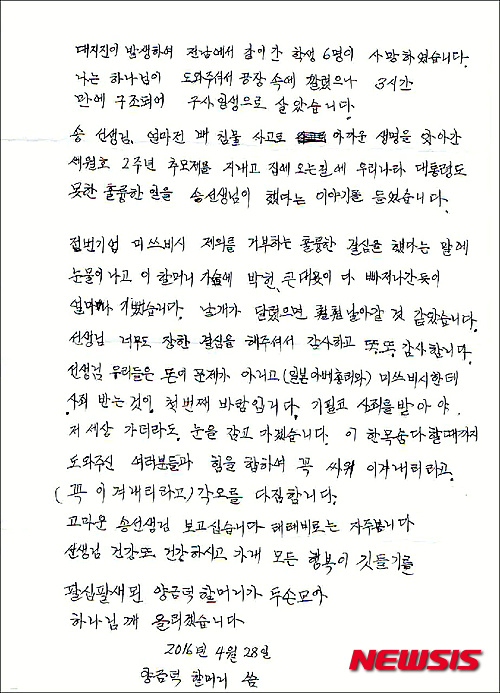 대지진이 발생하여 전남에서 같이 간 학생 6명이 사망하였습니다.
나는 하나님이 도와주셔서 공장 속에 깔렸으나 3시간
만에 구조되어 구사일생으로 살았습니다.
송 선생님, 얼마전 배 침몰 사고로 아까운 생명을 앗아간
세월호 2주년 추모제를 지내고 집에 오는길에 우리나라 대통령도
못한 훌륭한 일을 송선생님이 했다는 이야기를 들었습니다.
전범기업 미쓰비시 제의를 거부하는 훌륭한 결심을 했다는 말에
눈물이 나고 이 할머니 가슴에 박힌, 큰 대못이 다 빠져나간듯이
얼마나 기뻤습니다. 날개가 달렸으면 훨훨 날아갈 것 같았습니다.
선생님 너무도 장한 결심을 해주셔서 감사하고 또, 또, 감사합니다.
선생님 우리들은 돈이 문제가 아니고 (일본 아베총리와) 미쓰비시한테
사죄 받는 것이 첫번째 바람입니다. 기필코 사죄을 받아야
저 세상 가더라도 눈을 감고 가겠습니다. 이 한목숨 다 할때까지
도와주신 여러분들과 힘을 합하여 꼭 싸워 이겨내리라고.
(꼭 이겨내리라고) 각오를 다짐합니다.
고마운 송선생님 보고십습니다 태레비로는 자주봅니다
선생님 건강 또, 건강하시고 가내 모든 행복이 깃들기를
팔십팔세된 양금덕 할머니가 두손모아
하나님께 올리겠습니다
2016년 4월 28일
양금덕 할머니 씀
NEWSIS